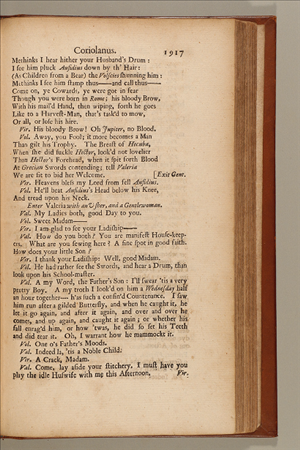 Coriolanus. 1917
Methinks I hear hither your Husband's Drum:
I see him pluck Aufidius down by th' Hair:
(As Children from a Bear) the Volscies shunning him:
Methinks I see him stamp thus——and call thus——
Come on, ye Cowards, ye were got in fear
Though you were born in Rome; his bloody Brow,
With his mail'd Hand, then wiping, forth he goes
Like to a Harvest-Man, that's task'd to mow,
Or all, or lose his hire.
Vir. His bloody Brow! Oh Jupiter, no Blood.
Vol. Away, you Fool; it more becomes a Man
Than gilt his Trophy. The Breast of Hecuba,
When she did suckle Hector, look'd not lovelier
Than Hector's Forehead, when it spit forth Blood
At Grecian Swords contending; tell Valeria
We are fit to bid her Welcome. [Exit Gent.
Vir. Heavens bless my Lord from fell Aufidius.
Vol. He'll beat Aufidius's Head below his Knee,
And tread upon his Neck.
Enter Valeria with an Usher, and a Gentlewoman.
Val. My Ladies both, good Day to you.
Vol. Sweet Madam——
Vir. I am glad to see your Ladiship——
Val. How do you both? You are manifest House-keep-
ers. What are you sewing here? A fine spot in good faith.
How does your little Son?
Vir. I thank your Ladiship: Well, good Madam.
Vol. He had rather see the Swords, and hear a Drum, than
look upon his School-master.
Val. A my Word, the Father's Son: I'll swear 'tis a very
pretty Boy. A my troth I look'd on him a Wednesday half
an hour together—— h'as such a confirm'd Countenance. I saw
him run after a gilded Butterfly, and when he caught it, he
let it go again, and after it again, and over and over he
comes, and up again, and caught it again; or whether his
fall enrag'd him, or how 'twas, he did so set his Teeth
and did tear it. Oh, I warrant how he mammockt it.
Vol. One o's Father's Moods.
Val. Indeed la, 'tis a Noble Child.
Vir. A Crack, Madam.
Val. Come, lay aside your stitchery, I must have you
play the idle Huswife with me this Afternoon. Vir.